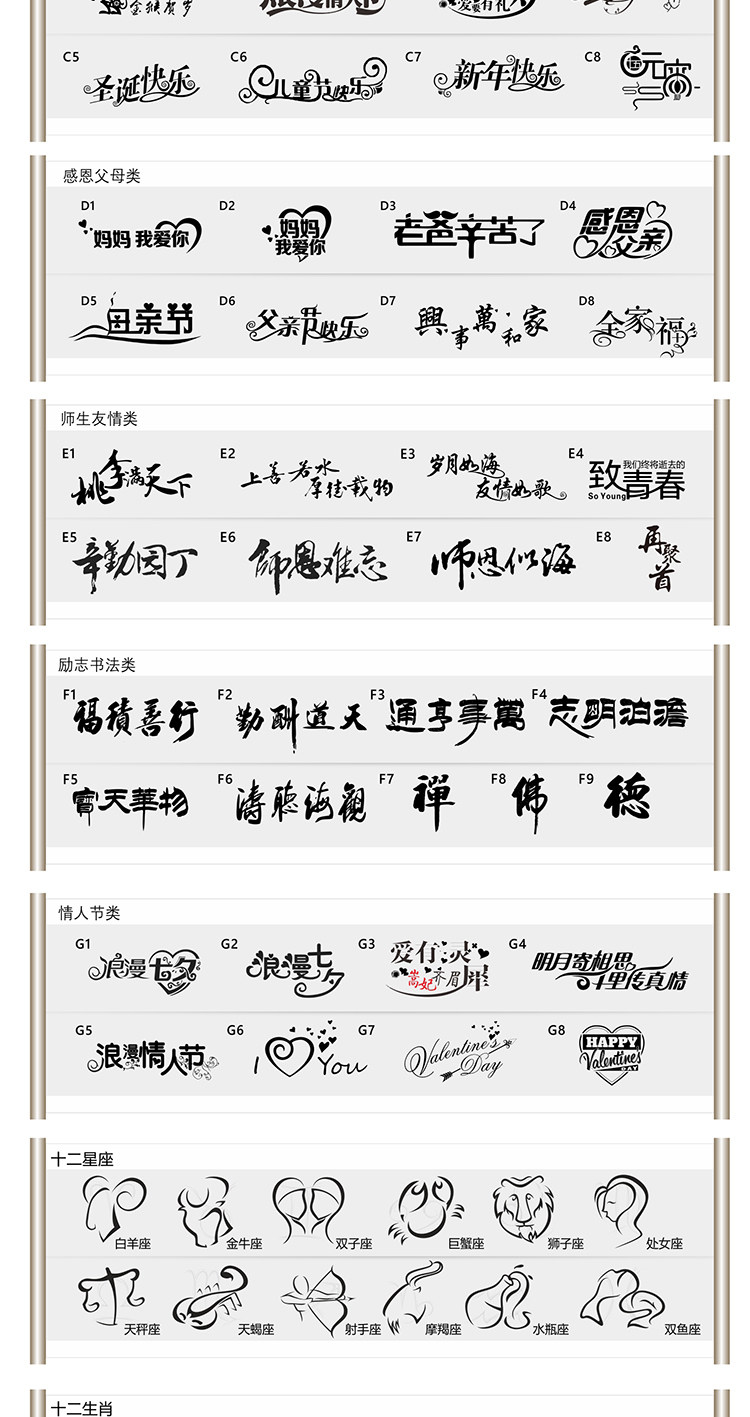 金猴贺岁
C5
圣诞快乐
C6
儿童节快乐
C7
新年快乐
C8
元宵
感恩父母类
D1
妈妈 我爱你
D2
妈妈
我爱你
D3
老爸辛苦了
D4
感恩
父亲
D5
母亲节
D6
父亲节快乐
D7
興事萬和家
D8
全家福
师生友情类
E1
桃李满天下
E2
上善若水
厚德载物
E3
岁月如海
友情如歌
E4
致青春
我们终将逝去的
So Young
E5
辛勤园丁
E6
師恩难忘
E7
师恩似海
E8
再聚首
励志书法类
F1
福積善行
F2
勤酬道天
F3
通亨事萬
F4
志明泊澹
F5
寶天華物
F6
濤聽海觀
F7
禪
F8
佛
F9
德
情人节类
G1
浪漫七夕
G2
浪漫七夕
G3
爱有灵犀
嵩妃齐眉
G4
明月寄相思
千里传真情
G5
浪漫情人节
G6
I You
G7
Valentine's
Day
G8
HAPPY
Valentines
DAY
十二星座
白羊座
金牛座
双子座
巨蟹座
狮子座
处女座
天秤座
天蝎座
射手座
摩羯座
水瓶座
双鱼座
十二生肖